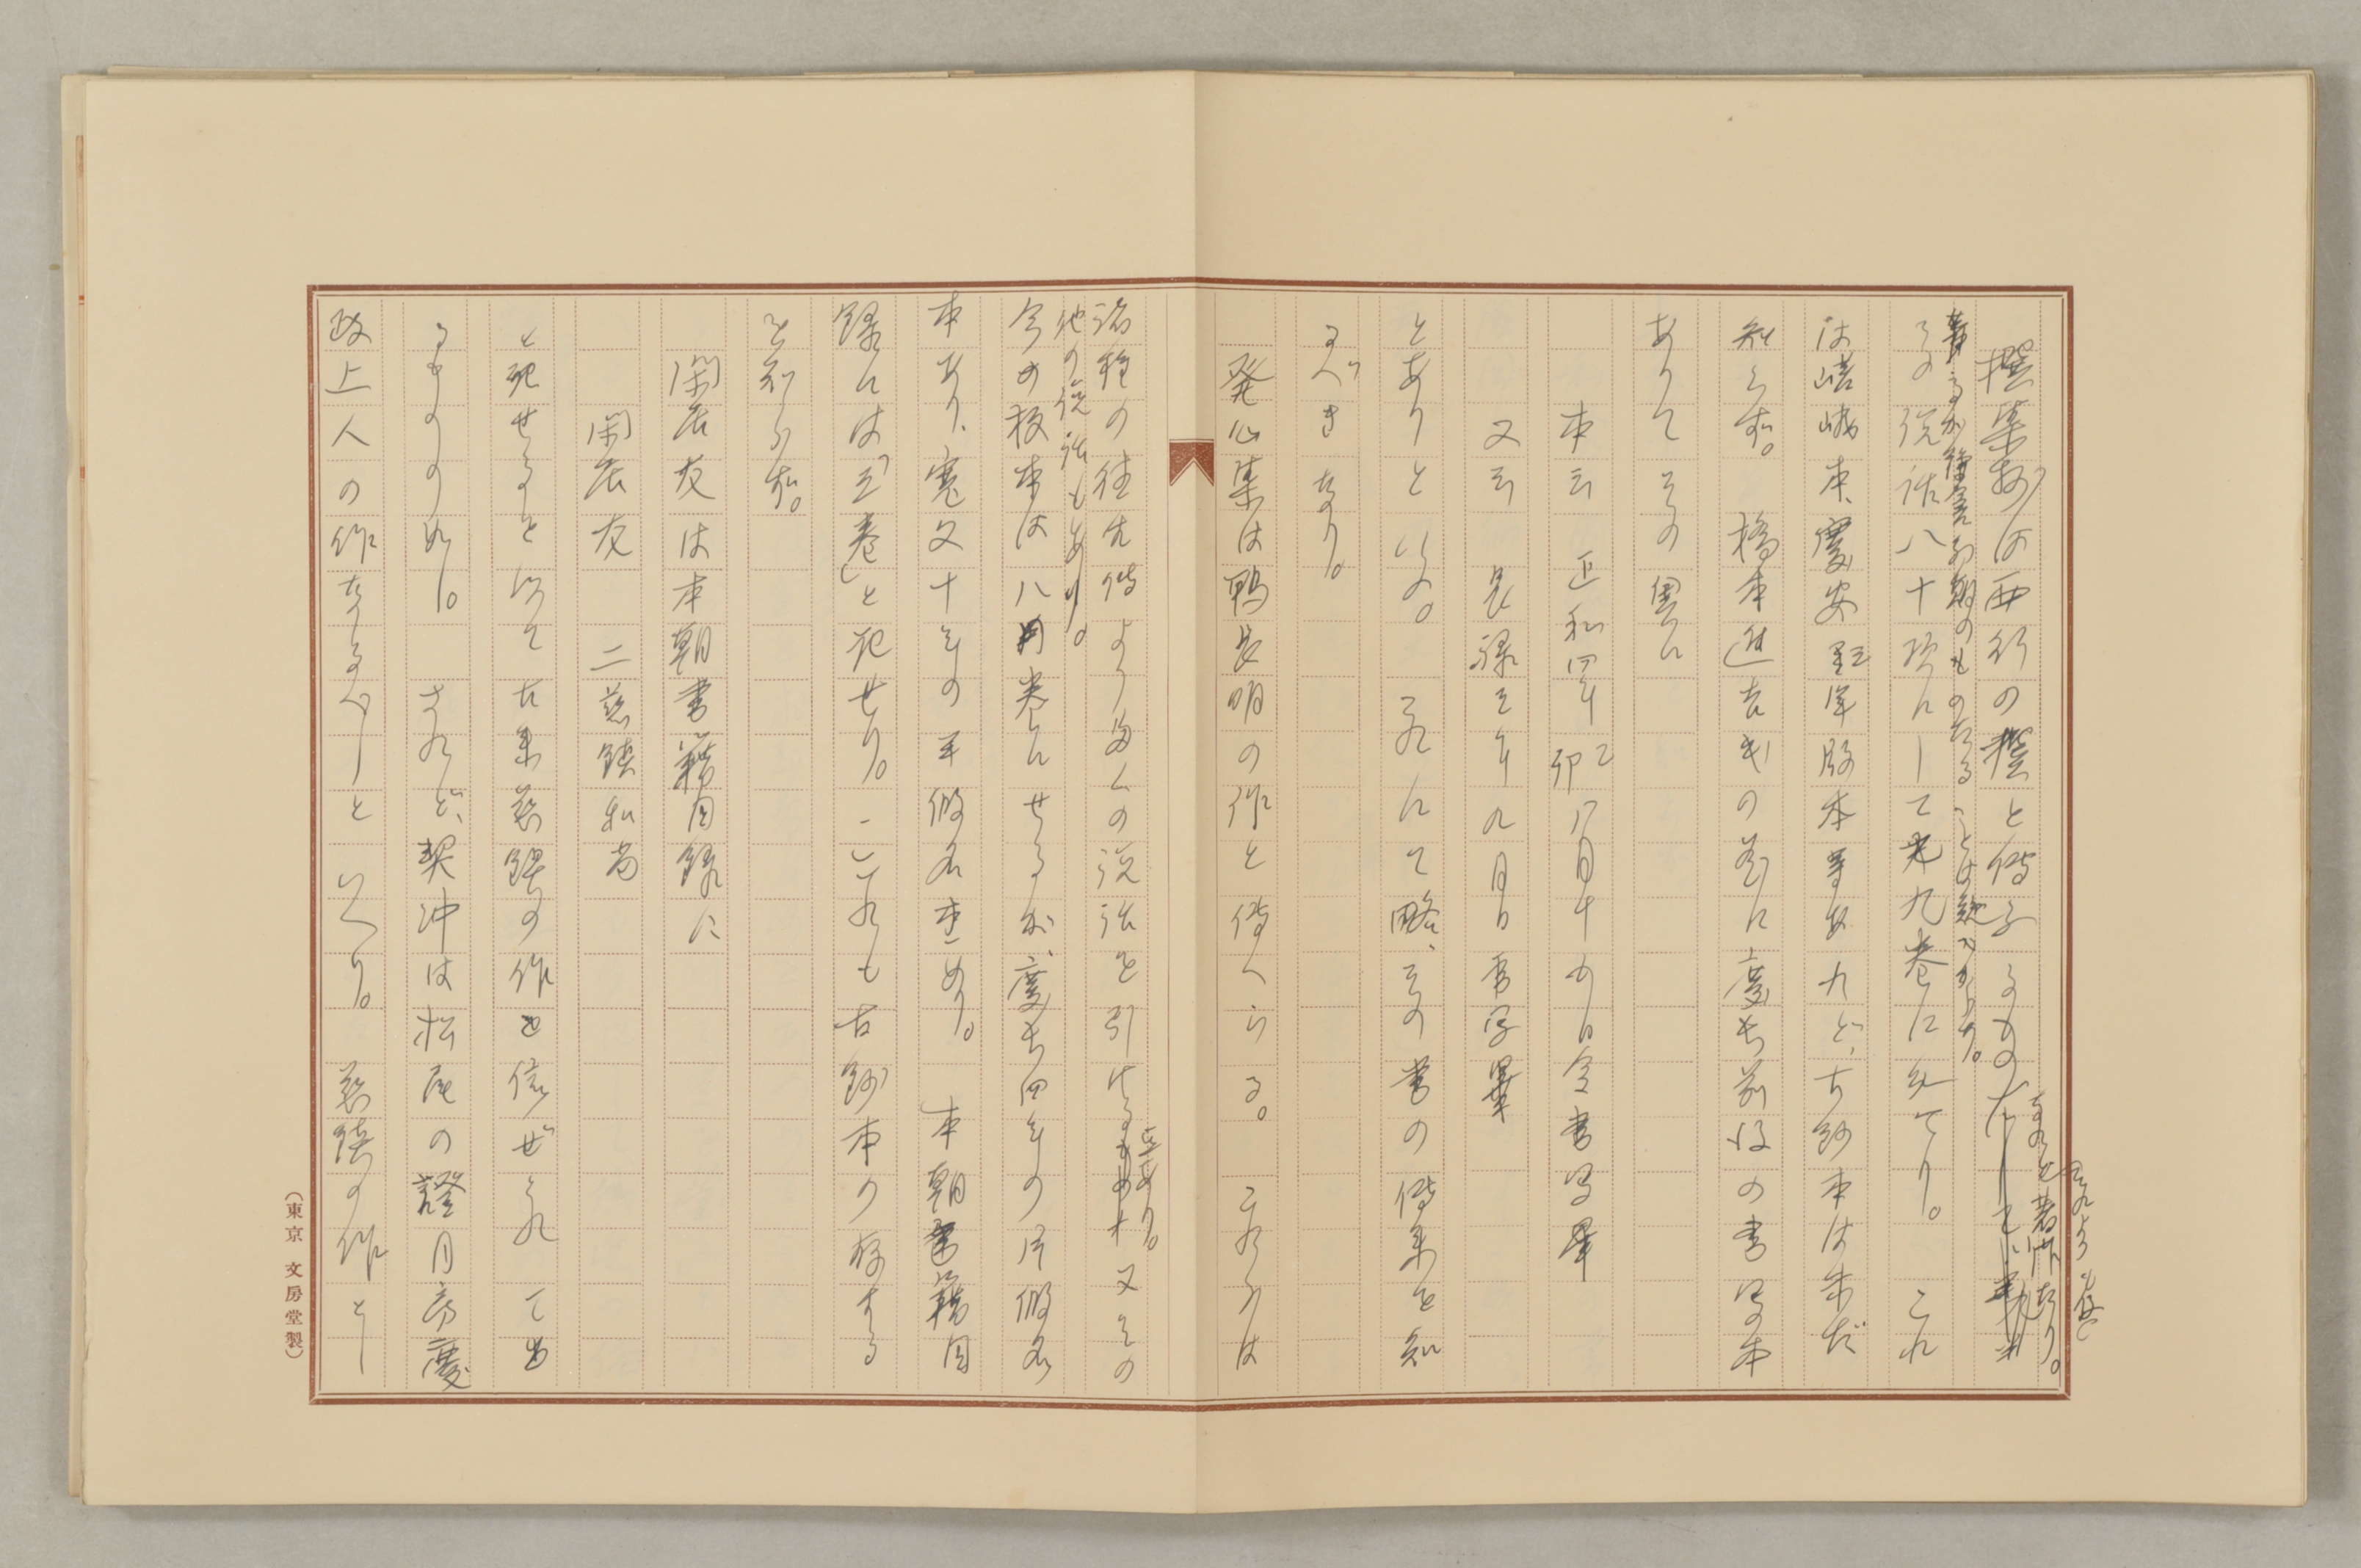 撰集抄は西行の撰と傳ふるもの
なれど著作なり。
著るか鎌倉初期のものたることは疑ふべからず。
その説話八十項にして九巻に分てり。 これ
は嵯峨本、慶安四年版本等あれど、古鈔本は未だ
知らず。 橋本進吉氏の蔵に慶長前後の書写本
ありてその奥に
本云 正和四年乙卯八月十四日令書写畢
又云 長禄三年九月日書写畢
とありといふ。 これにて略、その書の傳来を知
るべきなり。
発心集は鴨長明の作と傳へらる。 これらは
諸種の往生傳より多くの説話を引
又その
他の説話もあり。
今の板本は八巻にせるが、慶安四年の片假名
本あり、寛文十年の平假名本あり。 本朝書籍目
録には「三巻」と記せり。 これも古鈔本の存する
を知らず。
閑居友は本朝書籍目録に
閑居友 二 慈鎮和尚
と記せるを以て古来慈鎮の作と信ぜられて居
るものの如し。 されど、契沖は松尾の證月房慶
政上人の作なるべしといへり。 慈鎮の作とし
(東京 文房堂製)